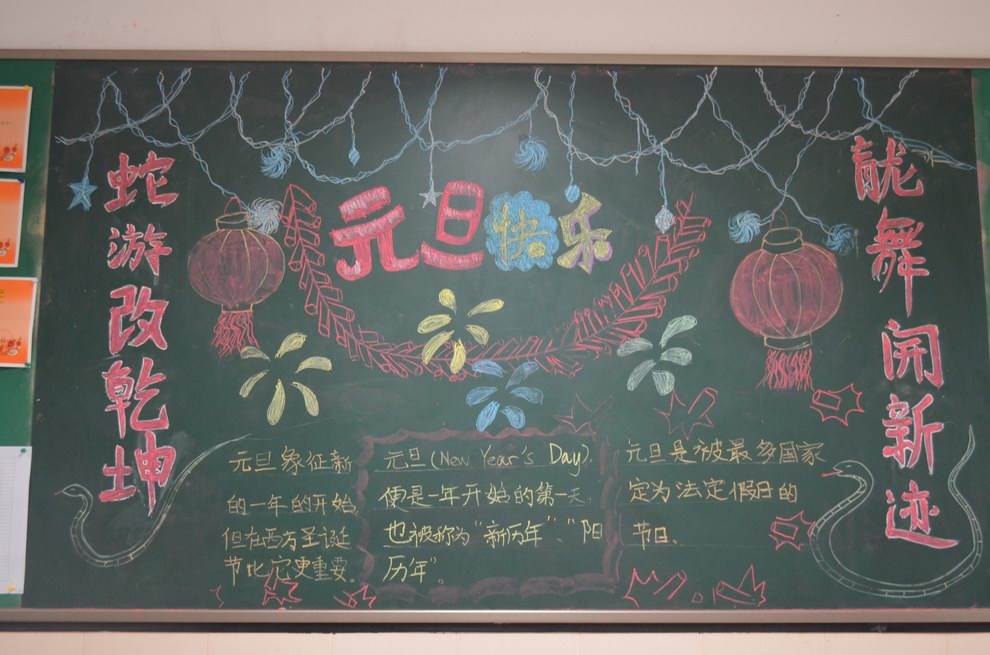 元旦快乐
龍舞开新迹
蛇游改乾坤
元旦象征新
的一年的开始,
但在西方圣诞
节比它更重要。
元旦(New Year's Day),
便是一年开始的第一天,
也被称为"新历年"、"阳
历年"。
元旦是被最多国家
定为法定假日的
节日。